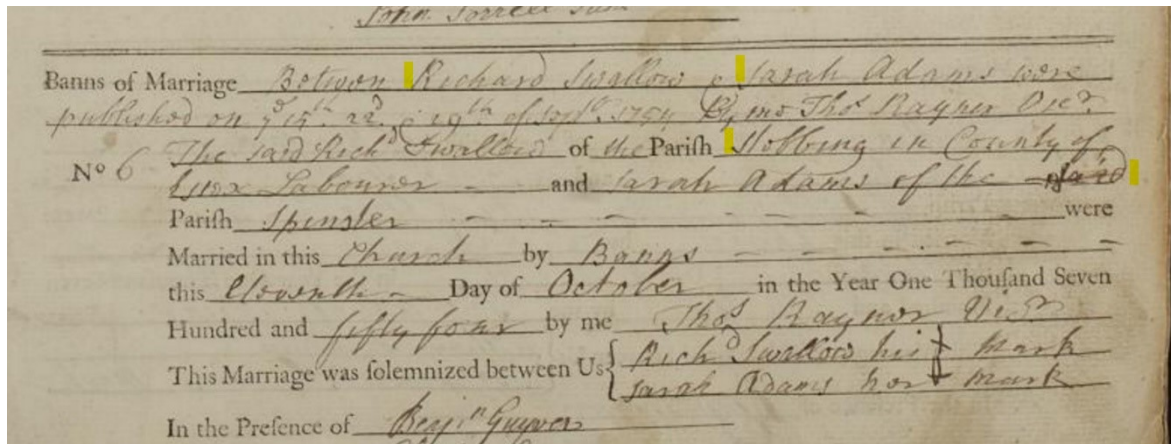 John Sorrell
Banns of Marriage Between Richard Swallow & Sarah Adams were
published on ye 15th. 22d. & 29th of Sepr. 1754 By me Thos Rayner Vicr.
The said Richd Swallow of the Parish Stebbing in County of
No 6 Essex Labourer - and Sarah Adams of the said
Parish Spinster - - - - - - - - were
Married in this Church by Banns - - - - - -
this Eleventh - Day of October in the Year One Thousand Seven
Hundred and fifty four by me Thos Rayner Vicr
This Marriage was solemnized between Us { Richd Swallow his } + mark
Sarah Adams her + mark
In the Presence of Benjn Guyver